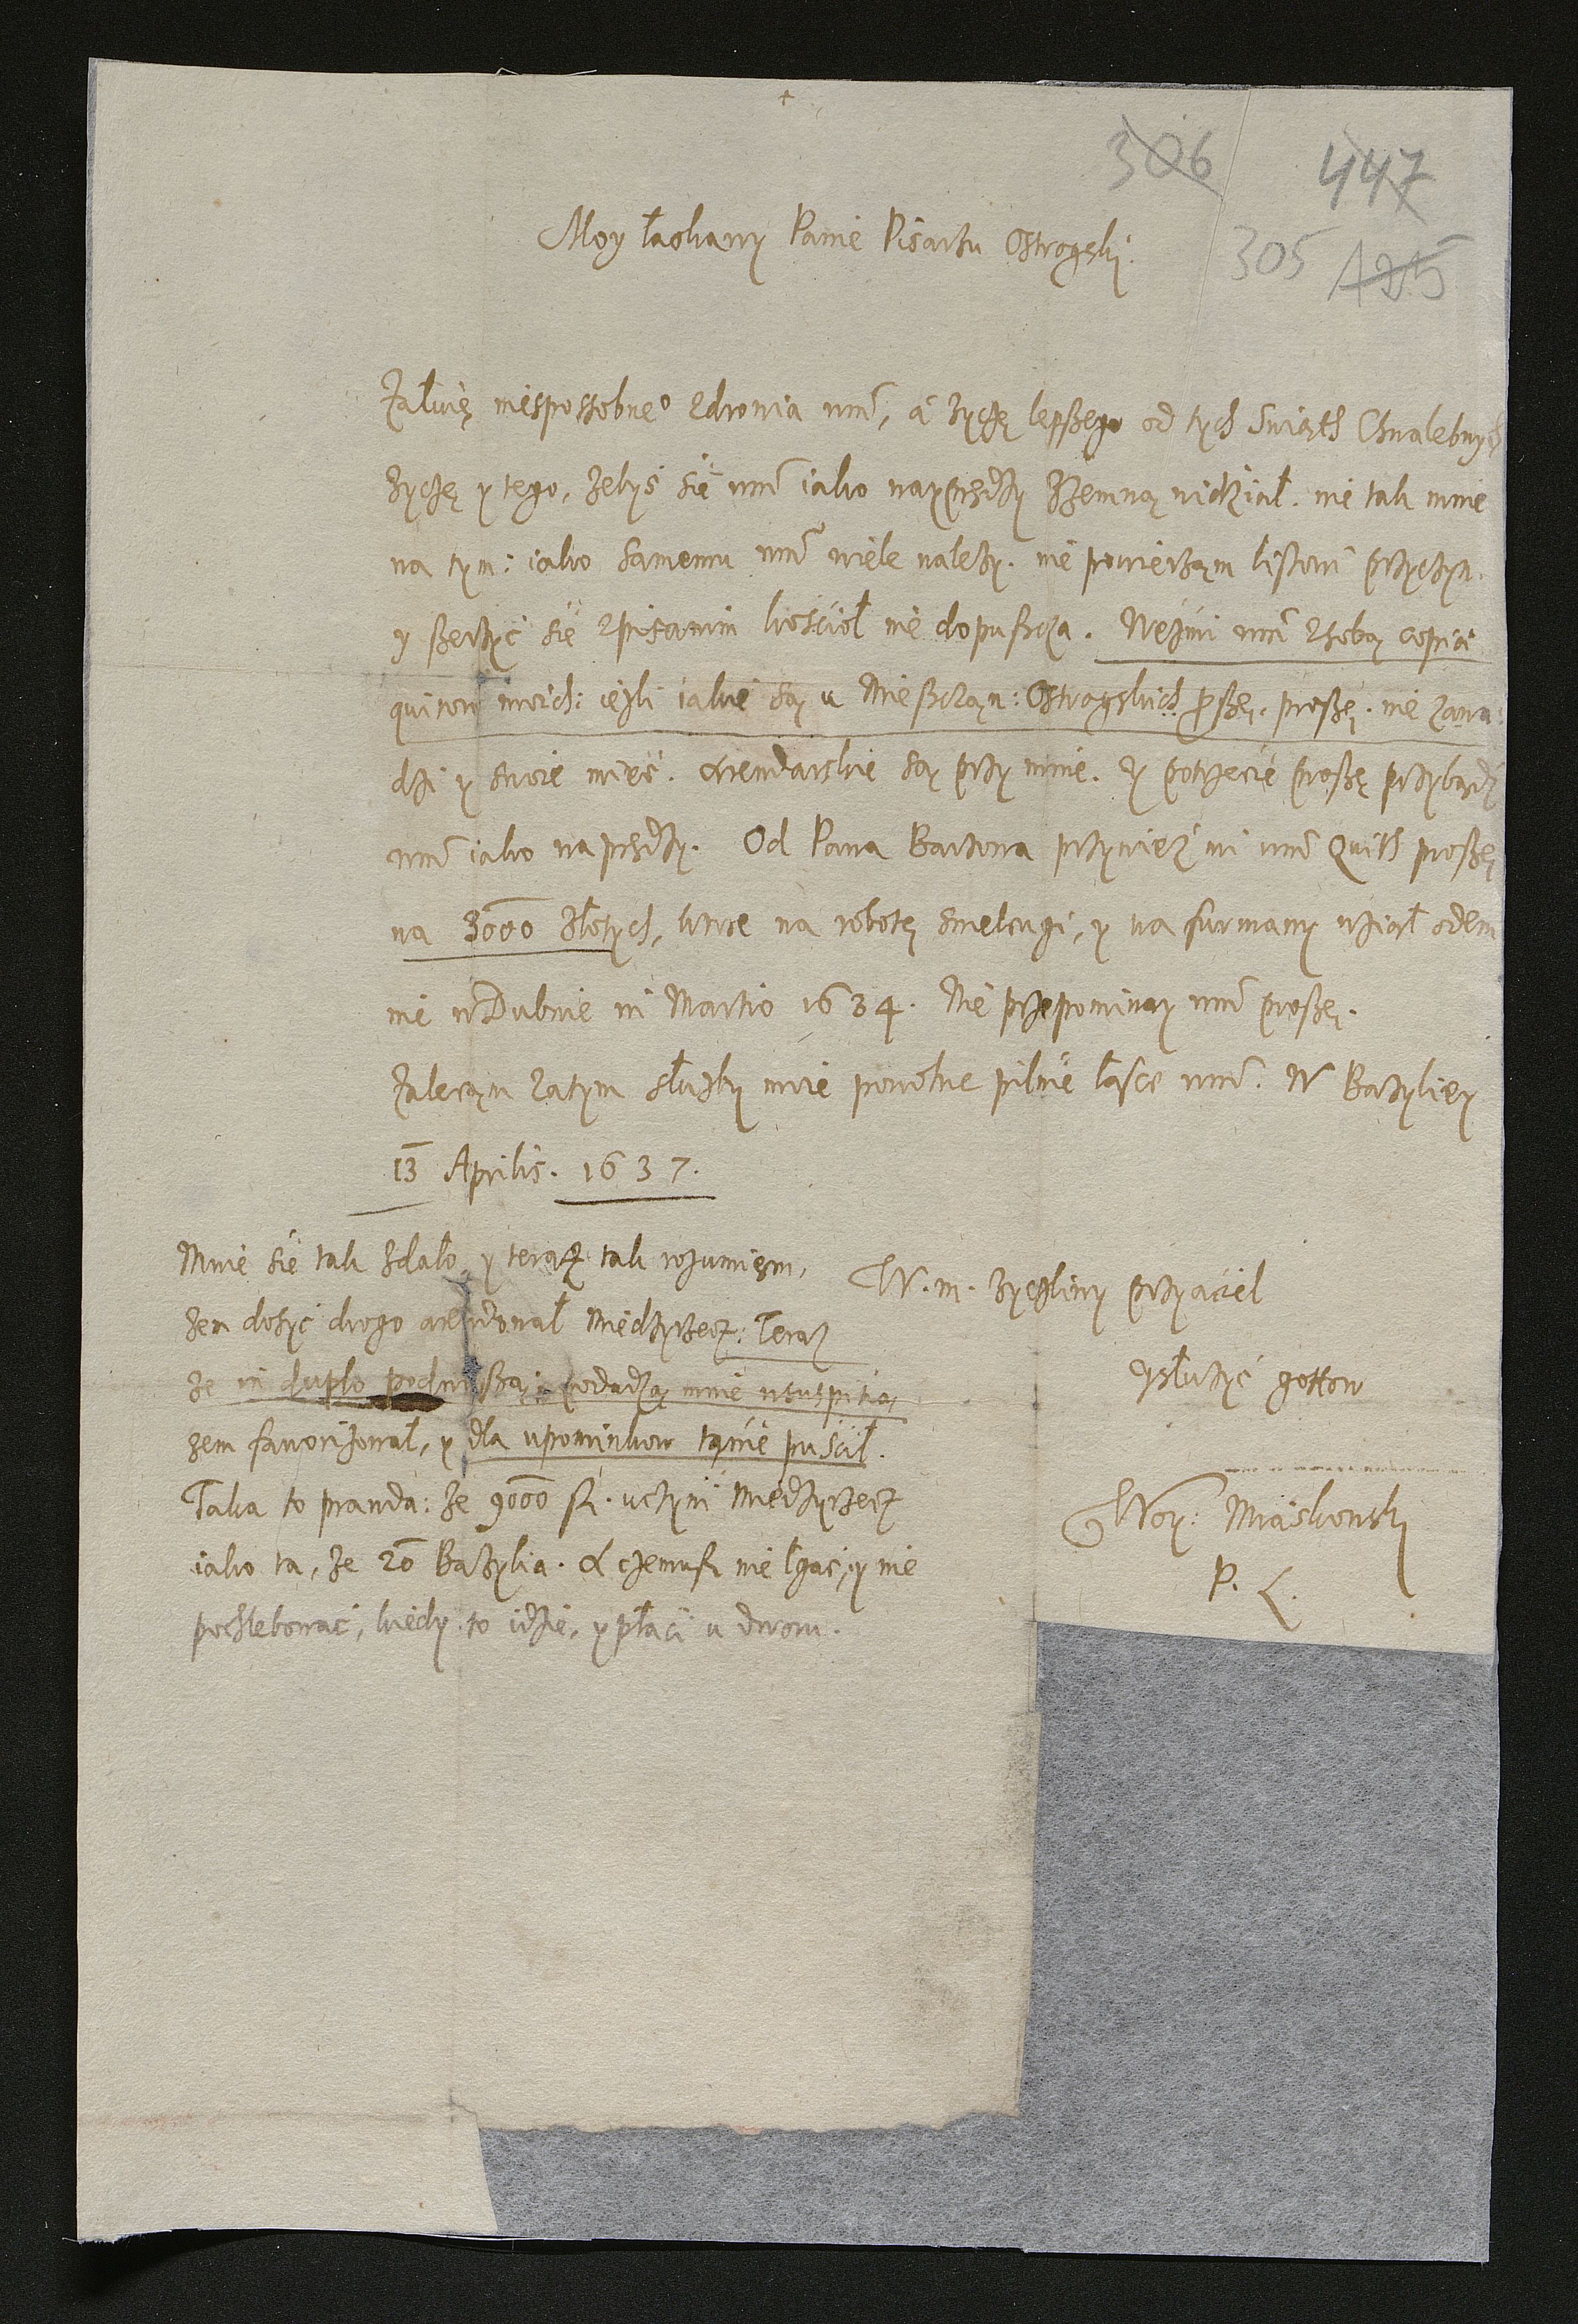 +
306 447
305 425
Moy łaskawy Panie Pisarzu Ostrogski.
Załuię niespossobneº zdrowia wmº, a zyczę lepszego od tych Swiąth Chwalebnych
zyczę y tego, zebyś się wmº iako nayprędzy zemną widział. nie tak mnie
na tym: iako samemu wmº wiele nalezy. nie powierzam listowi przyczyn.
y szerzyć się zpisanim kościoł nie dopuszcza. Weźmi wmº zsobą copią
quitow moich: ieźli iakie są u Mieszczan: Ostrogskich proszę. proszę. nie zawa-
dzi y swoie mieć. Arendarskie są przy mnie. Y potrzecie proszę przybądź
wmº iako naprędzy. Od Pana Bartona przywieź mi wmº Quith proszę
na 3000 złotych, ktore na robotę smelcugi, y na furmany wziął odem
mie w Dubnie in Martio 1634. Nie przepominay wmº proszę.
Zalecam zatym słuzby moie powolne pilnie łasce wmº. W Bazyliey
13 Aprilis. 1637.
Mnie się tak zdało, y teraz tak rozumiem,
zem dosyć drogo arendował Miedzyrzecz: Teraz
ze in duplo podnoszą; podadzą mnie w suspitią,
zem faworizował, y dla upominkow tanie puścił.
Taka to prawda: ze 9000 fl. uczyni Miedzyrzecz
iako ta, ze 20 Bazylia. A czemusz nie łgać, y nie
pochlebować, kiedy to idzie, y płaci u dworu.
W. m. zyczliwy przyaciel
y słuzyć gottow
Woy: Miaskowski
P. L.